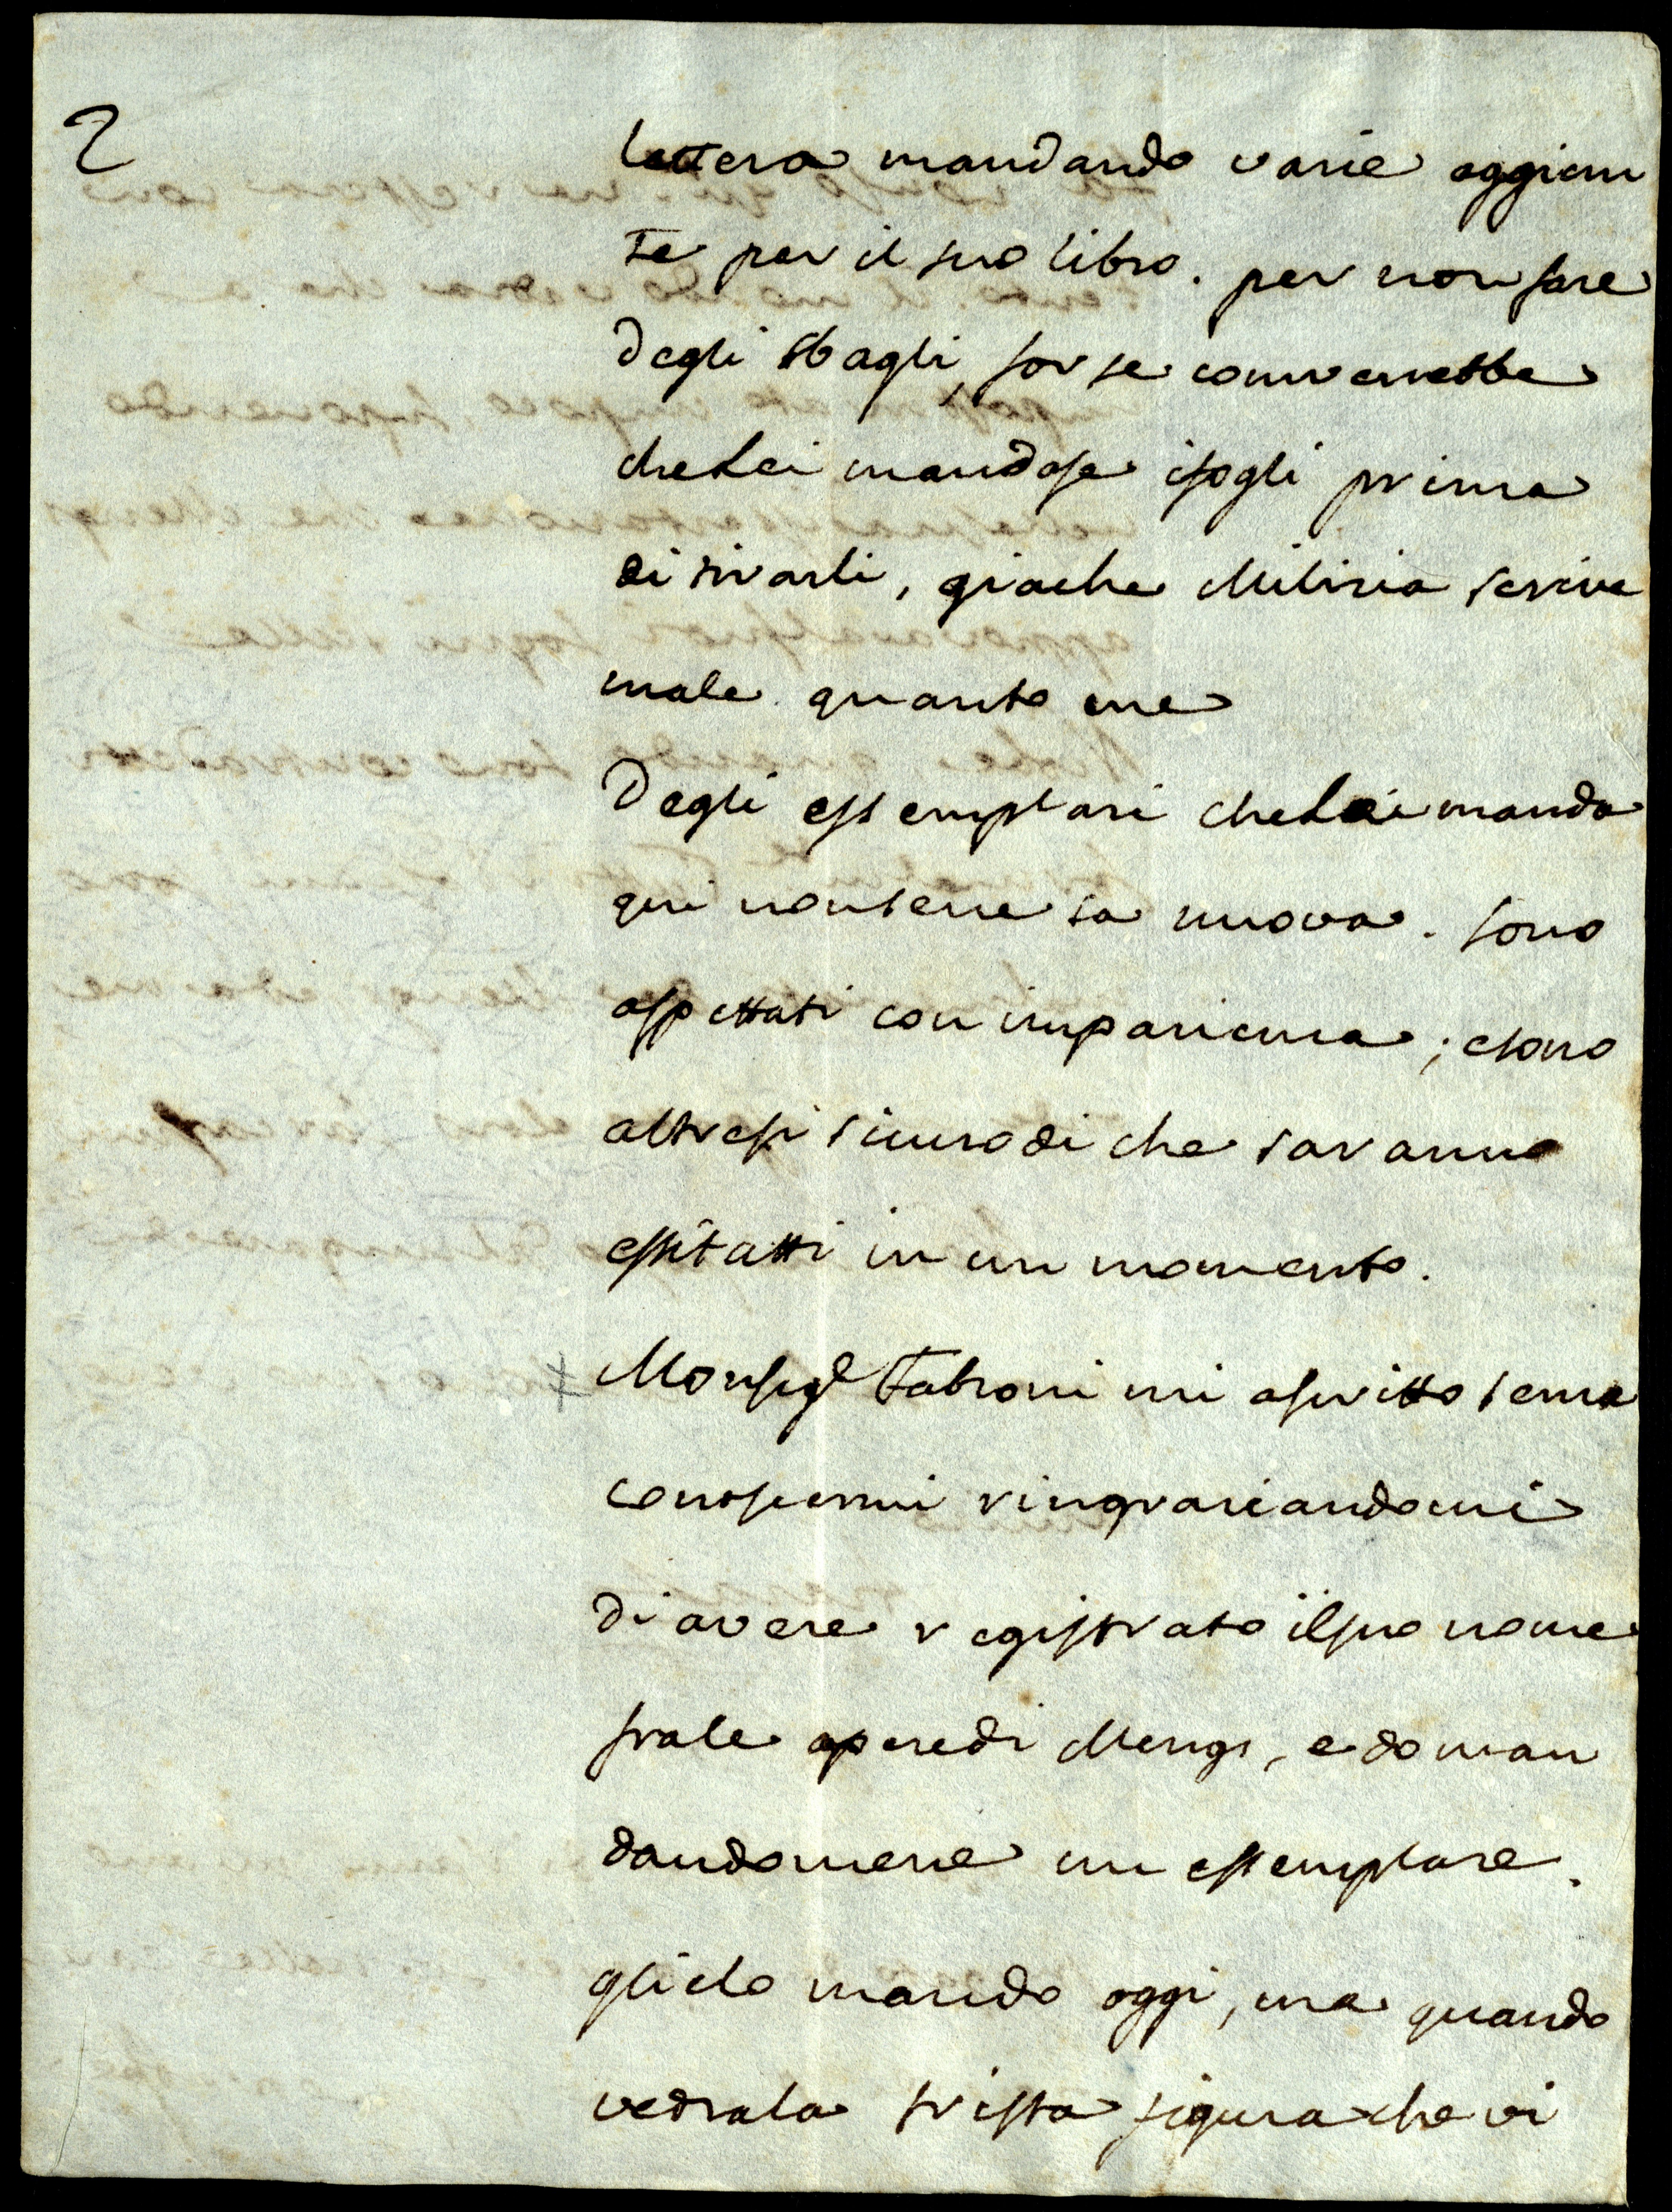 2
lettera mandando varie aggiun
te per il suo libro. per non fare
degli sbagli, forse converrebbe
che Lei mandase i fogli prima
di tirarli, giache Milizia scrive
male quanto me
Degli essemplari che Lei manda
qui non se ne sa nuova. sono
aspettati con impazienza; e sono
altresi sicuro di che saranno
essitatti in un momento.
Monsigr Fabroni mi a scritto senza
conoscermi ringraziandomi
di avere registrato il suo nome
fra le opere di Mengs, e doman
dandomene un essemplare.
glielo mando oggi, ma quando
vedra la trista figura che vi